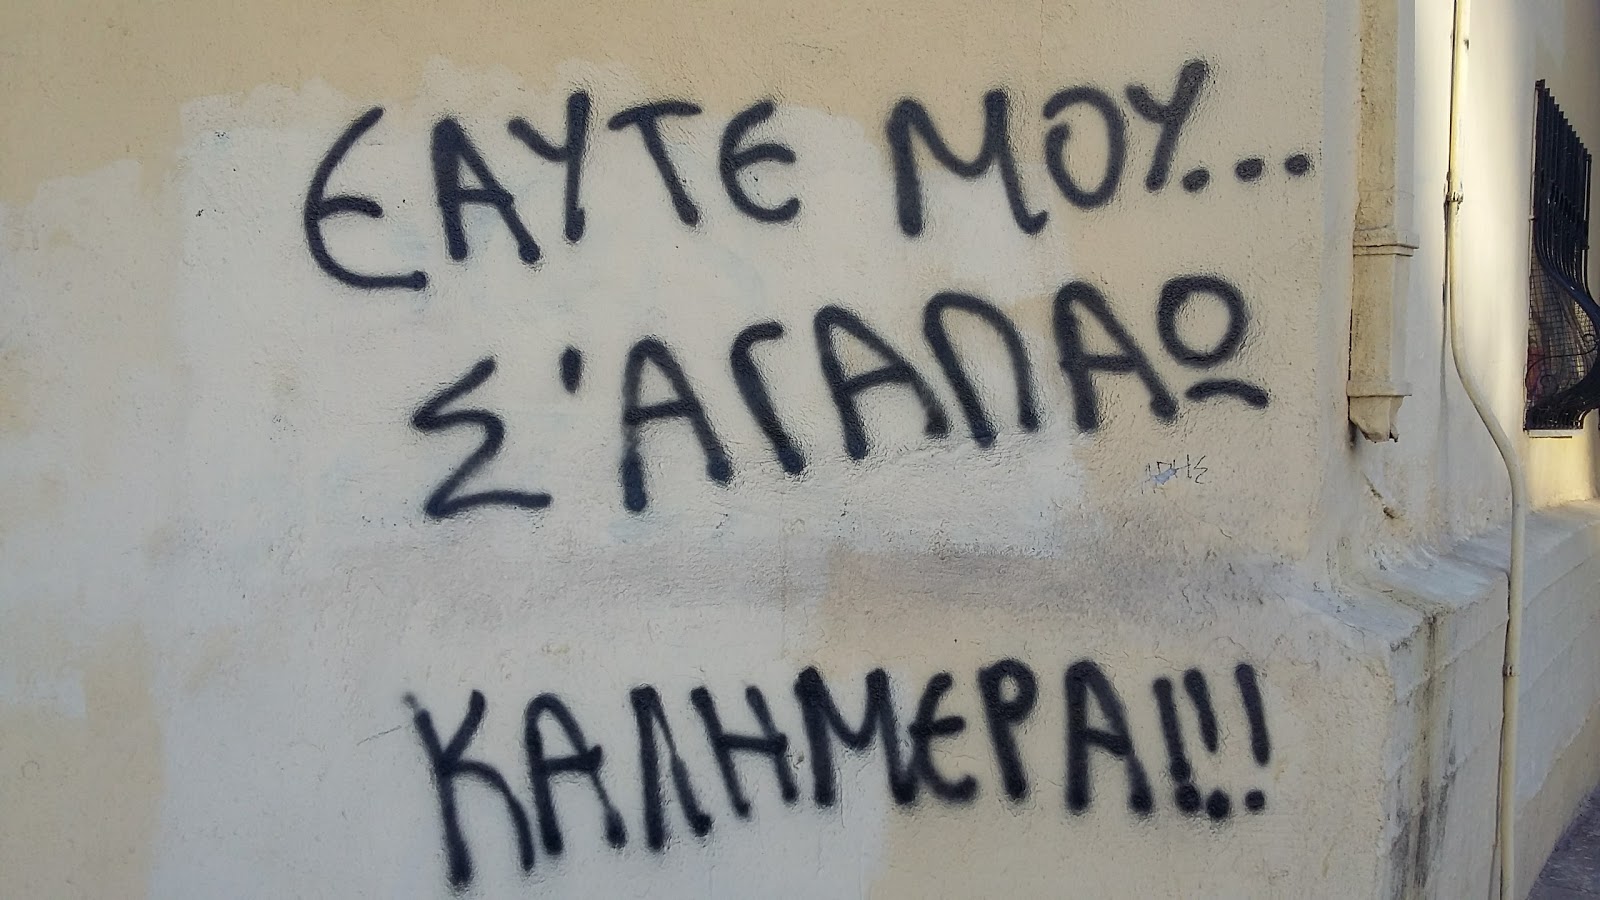 ΕΑΥΤΕ ΜΟΥ...
Σ'ΑΓΑΠΑΩ
ΑΡΗΣ
ΚΑΛΗΜΕΡΑ!!!